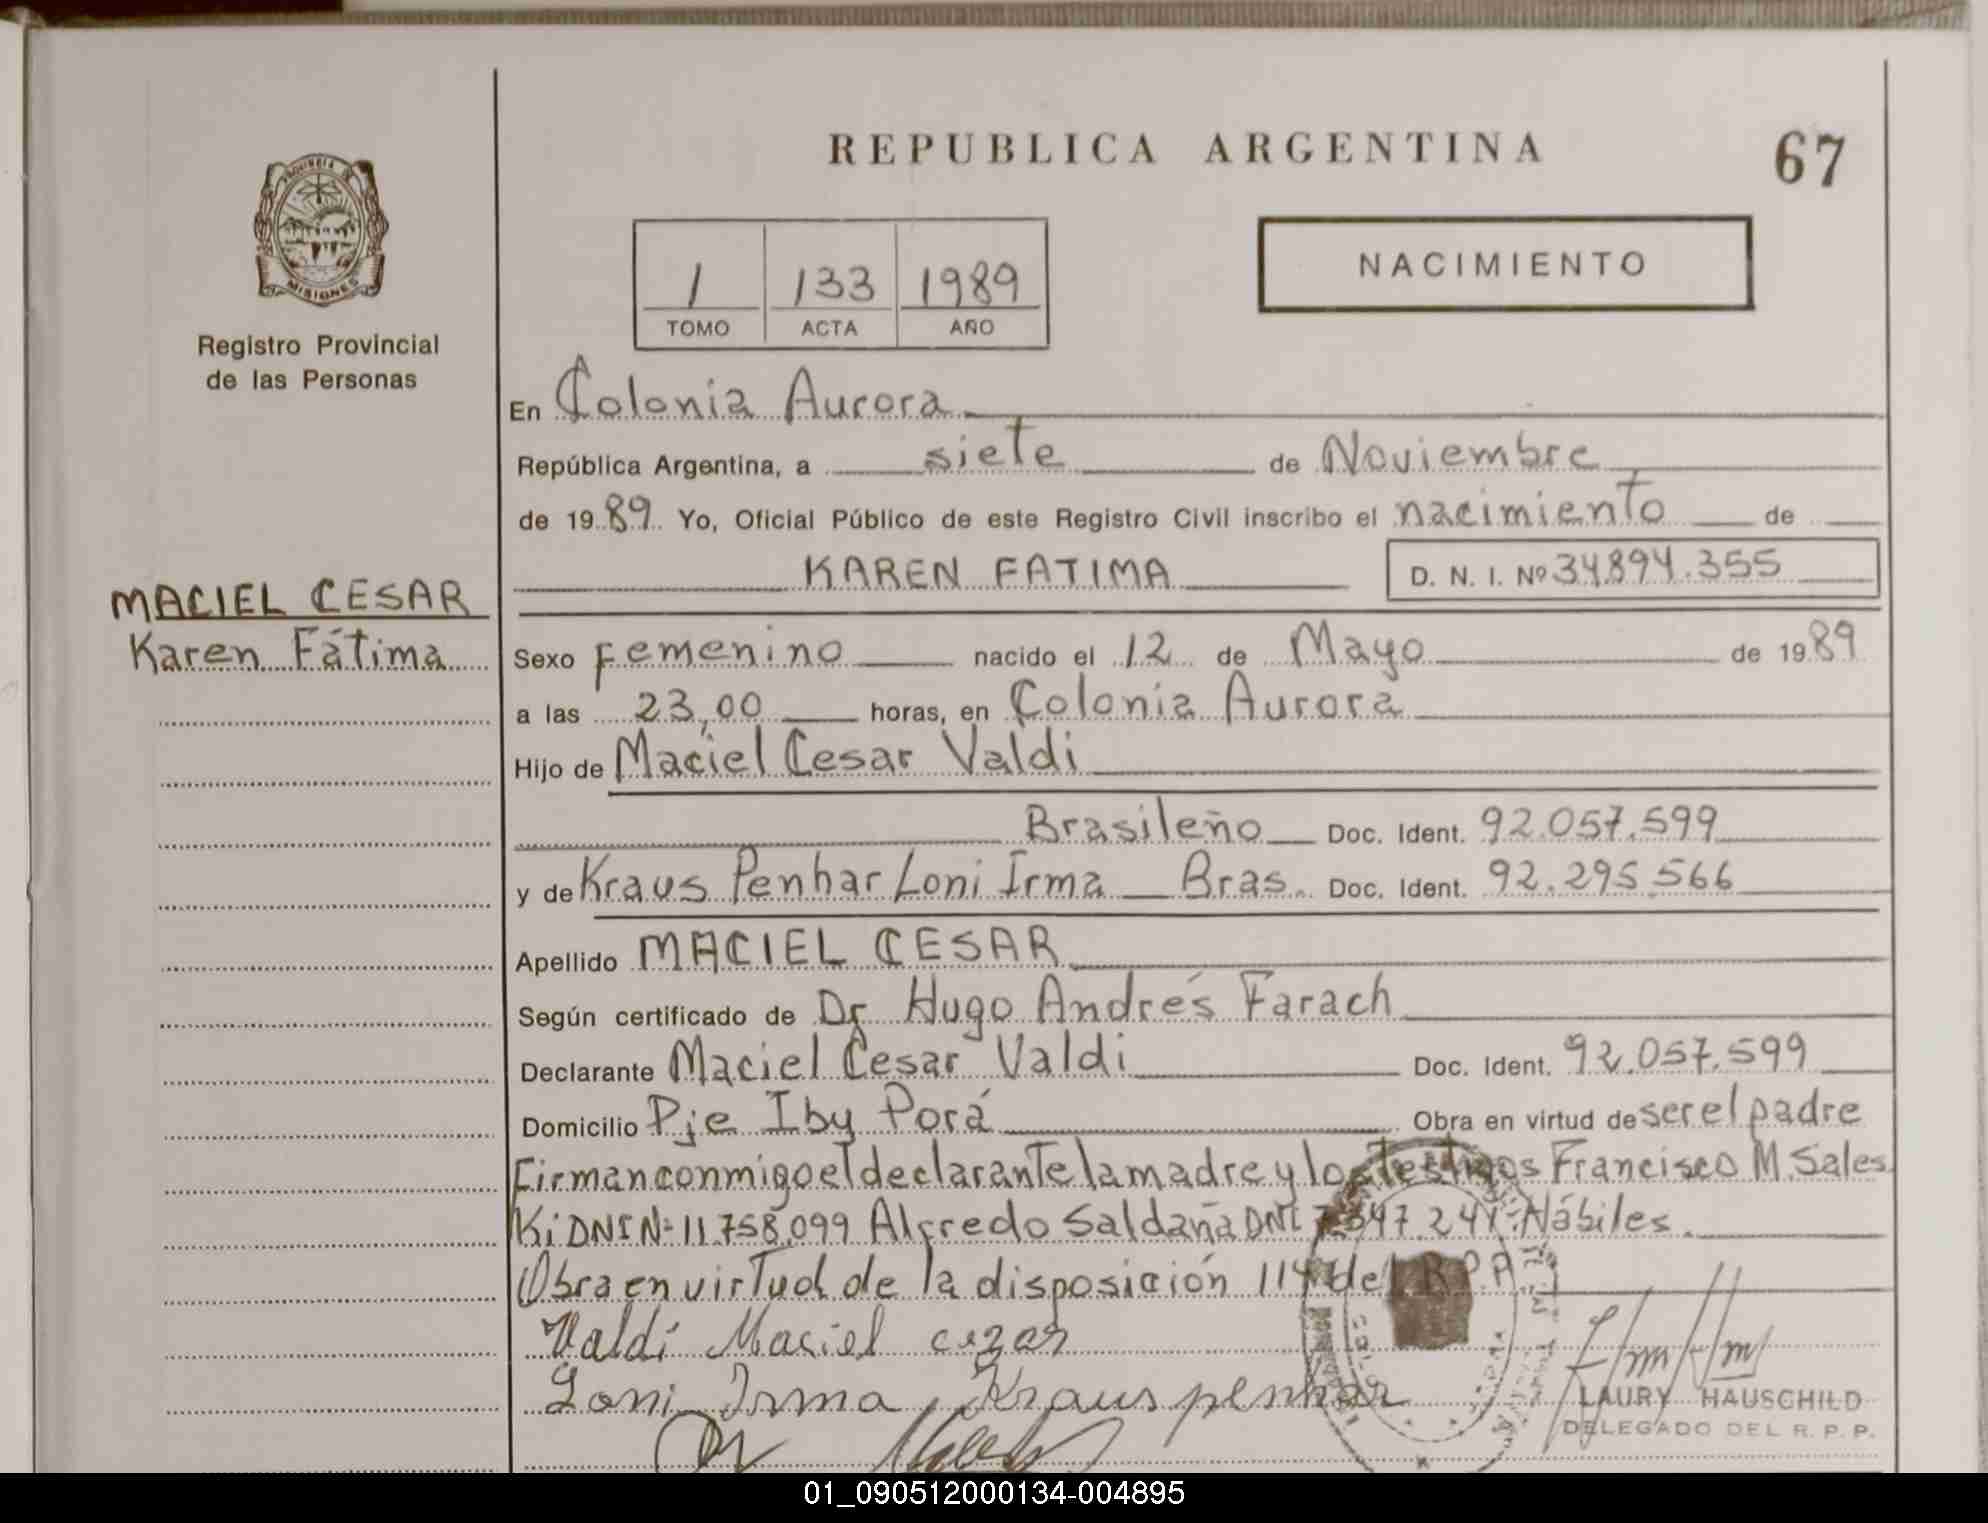 REPUBLICA ARGENTINA
67
PROVINCIA DE
MISIONES
Registro Provincial
de las Personas
1 133 1989
TOMO ACTA AÑO
NACIMIENTO
En Colonia Aurora
República Argentina, a siete de Noviembre
de 1989 Yo, Oficial Público de este Registro Civil inscribo el nacimiento de
KAREN FATIMA D. N. I. Nº 34.894.355
MACIEL CESAR
Karen Fátima
Sexo Femenino nacido el 12 de Mayo de 1989
a las 23,00 horas, en Colonia Aurora
Hijo de Maciel Cesar Valdi
Brasileño Doc. Ident. 92.057.599
y de Kraus Penhar Loni Irma Bras. Doc. Ident. 92.295.566
Apellido MACIEL CESAR
Según certificado de Dr Hugo Andrés Farach
Declarante Maciel Cesar Valdi Doc. Ident. 92.057.599
Domicilio Pje Iby Porá Obra en virtud de ser el padre
Firman conmigo el declarante la madre y los testigos Francisco M. Sales
Ki DNI Nº 11.758.099 Alfredo Saldaña DNI Hábiles.
Obra en virtud de la disposición 114 del R.P.P.
Valdi Maciel cezar
Loni Irma Krauspenhar
LAURY HAUSCHILD
DELEGADO DEL R. P. P.
01_090512000134-004895